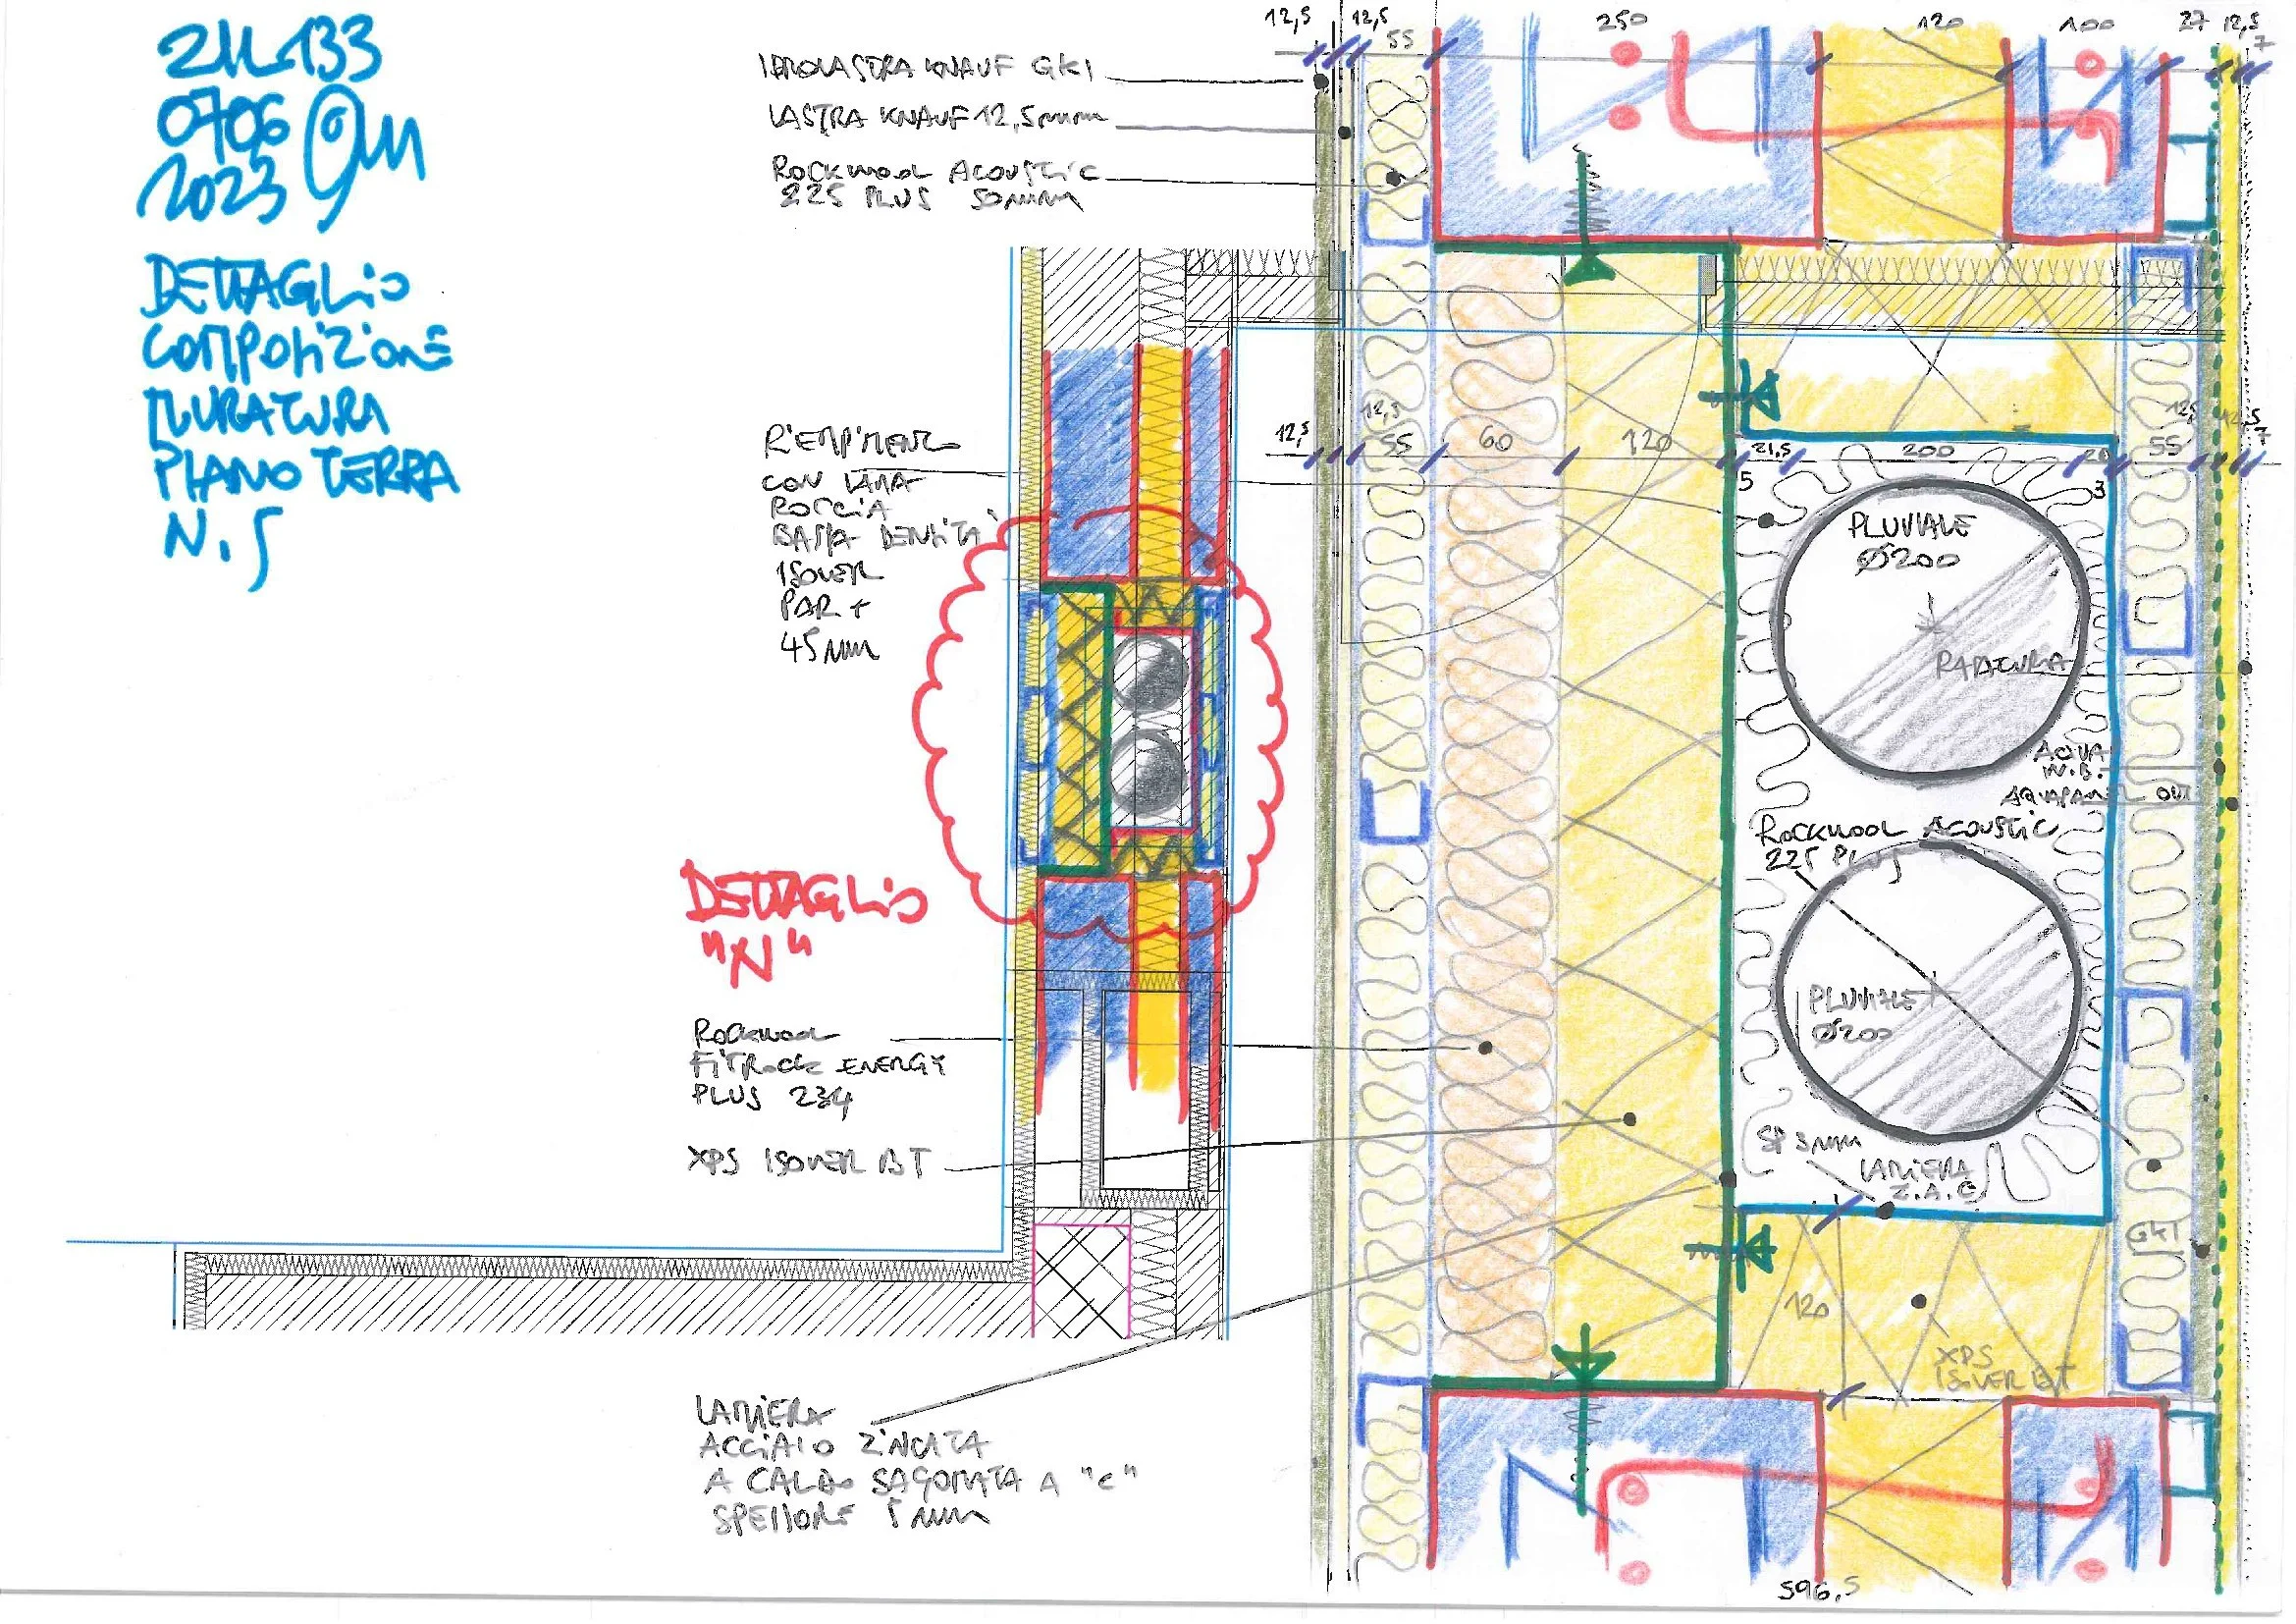 211133
0706
2023
DETTAGLIO
COMPOSIZIONE
MURATURA
PIANO TERRA
N.5
12,5
12,5
55
250
120
100
27
12,5
7
IDROLASTRA KNAUF GKI
LASTRA KNAUF 12,5mm
ROCKWOOL ACOUSTIC
225 PLUS 50mm
RIEMPIMENTO
CON LANA
ROCCIA
BASSA DENSITA'
ISOVER
PAR +
45 mm
12,5
12,5
55
60
120
5
21,5
200
20
3
55
12,5
12,5
7
PLUVIALE
Ø200
RASATURA
AQUAPANEL OUT
ROCKWOOL ACOUSTIC
225 PLUS
PLUVIALE
Ø200
SP 3mm
LAMIERA
Z.A.C
GKI
120
XPS
ISOVER BT
DETTAGLIO
"N"
ROCKWOOL
FITROCK ENERGY
PLUS 234
XPS ISOVER BT
LAMIERA
ACCIAIO ZINCATA
A CALDO SAGOMATA A "C"
SPESSORE 5 mm
596,5